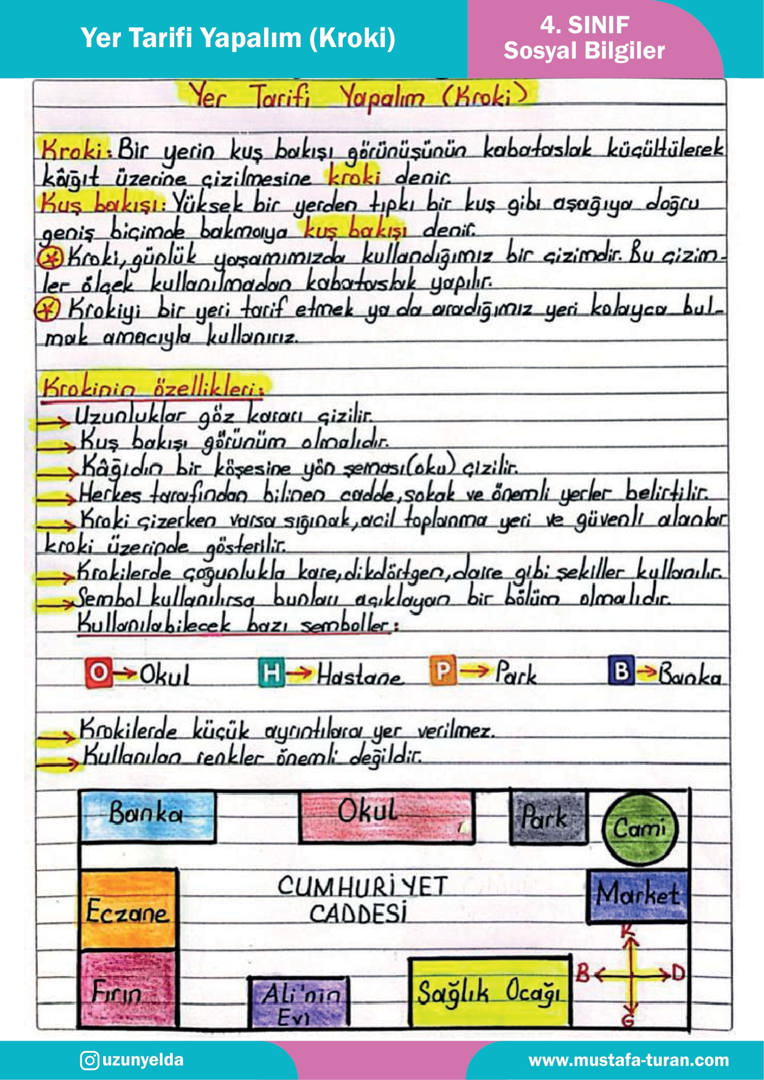 Yer Tarifi Yapalım (Kroki)
4. SINIF
Sosyal Bilgiler
Yer Tarifi Yapalım (Kroki)
Kroki: Bir yerin kuş bakışı görünüşünün kabataslak küçültülerek
kâğıt üzerine çizilmesine kroki denir.
Kuş bakışı: Yüksek bir yerden tıpkı bir kuş gibi aşağıya doğru
geniş biçimde bakmaya kuş bakışı denir.
Kroki, günlük yaşamımızda kullandığımız bir çizimdir. Bu çizim-
ler ölçek kullanılmadan kabataslak yapılır.
Krokiyi bir yeri tarif etmek ya da aradığımız yeri kolayca bul-
mak amacıyla kullanırız.
Krokinin özellikleri:
→ Uzunluklar göz kararı çizilir.
→ Kuş bakışı görünüm olmalıdır.
→ Kâğıdın bir köşesine yön şeması(oku) çizilir.
→ Herkes tarafından bilinen cadde, sokak ve önemli yerler belirtilir.
→ Kroki çizerken varsa sığınak, acil toplanma yeri ve güvenli alanlar
kroki üzerinde gösterilir.
→ Krokilerde çoğunlukla kare, dikdörtgen, daire gibi şekiller kullanılır.
→ Sembol kullanılırsa bunları açıklayan bir bölüm olmalıdır.
Kullanılabilecek bazı semboller:
O → Okul H → Hastane P → Park B → Banka
→ Krokilerde küçük ayrıntılara yer verilmez.
→ Kullanılan renkler önemli değildir.
Banka
Okul
Park
Cami
Eczane
CUMHURİYET
CADDESİ
Market
Fırın
Ali'nin
Evi
Sağlık Ocağı
K
B D
G
uzunyelda
www.mustafa-turan.com